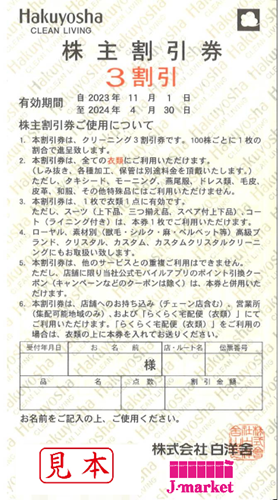 Hakuyosha
CLEAN LIVING
株主割引券
3割引
有効期間 自 2023年 11月 1日
至 2024年 4月 30日
株主割引券ご使用について
1. 本割引券は、クリーニング3割引券です。100株ごとに1枚の
割合で進呈致します。
2. 本割引券は、全ての衣類にご利用いただけます。
(しみ抜き、各種加工、保管は別途料金を頂戴いたします。)
ただし、タキシード、モーニング、燕尾服、ドレス類、毛皮、
皮革、和服、その他特殊品にはご利用いただけません。
3. 本割引券は、1枚で衣類1点に有効です。
ただし、スーツ(上下品、三つ揃え品、スペア付上下品)、コー
ト(ライニング付き)は、本券1枚でご利用いただけます。
4. ローヤル、素材別(獣毛・シルク・麻・ベルベット等)高級ブ
ランド、クリスタル、カスタム、カスタムクリスタルクリーニ
ングにもお取扱い致します。
5. 本割引券は、他のサービスとの重複ご利用はできません。
ただし、店舗に限り当社公式モバイルアプリのポイント引換クー
ポン(キャンペーンなどのクーポンは除く)は、本券と併用いた
だけます。
6. 本割引券は、店舗へのお持ち込み(チェーン店含む)、営業所
(集配可能地域のみ)、および「らくらく宅配便(衣類)」にて
ご利用いただきます。「らくらく宅配便(衣類)」をご利用の
場合は、衣類の上に本券を入れてお送りください。
受付年月日 お名前 店・ルート名 伝票番号
様
品名 点数 割引金額
お名前をご記入の上、ご使用ください。
株式会社 白洋舍
見本
J-market